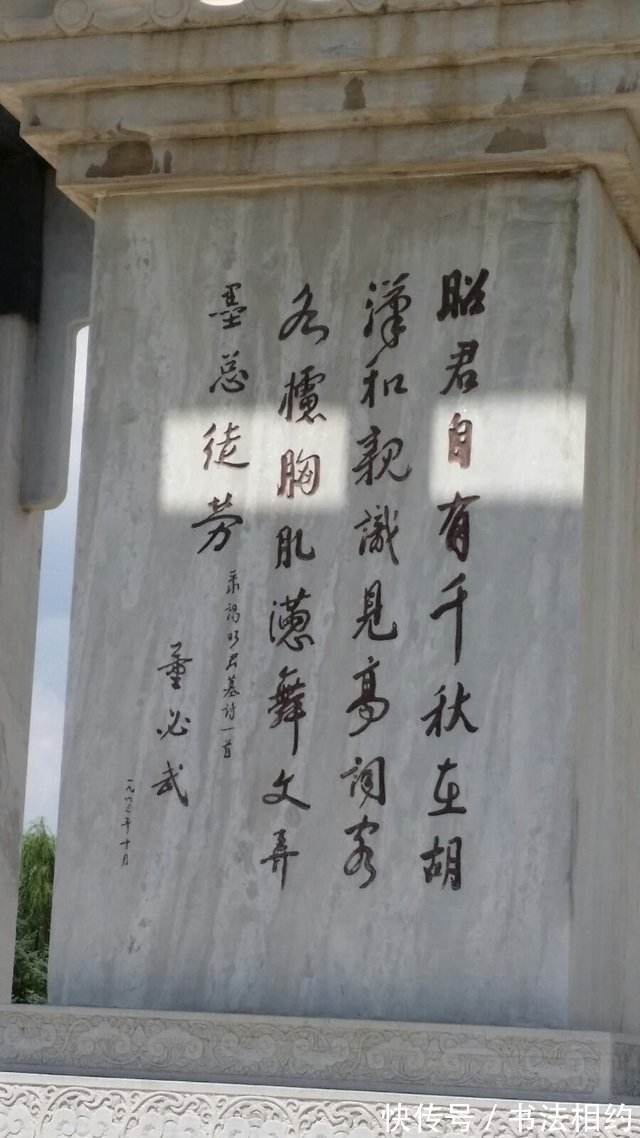 昭君自有千秋在胡
漢和親識見高詞客
各攄胸肊懣舞文弄
墨总徒劳
谒昭君墓诗一首
董必武
一九六三年十月
快传号/书法相约